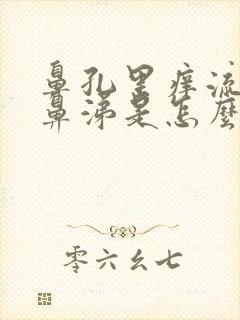 鼻孔里痒流
鼻涕是怎麽
零六幺七